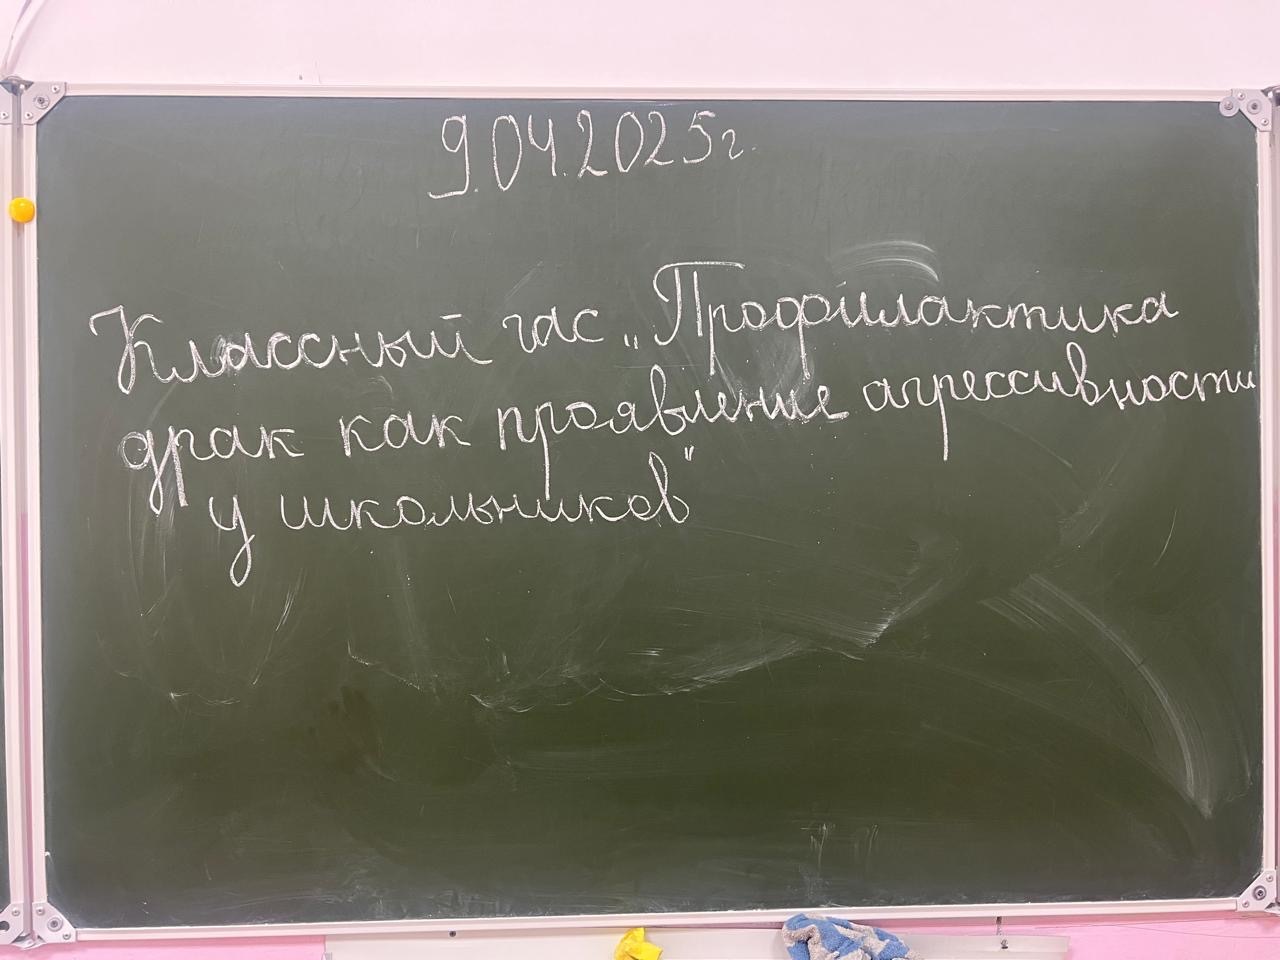 9.04.2025г.
Классный час „Профилактика
драк как проявление агрессивности
у школьников"